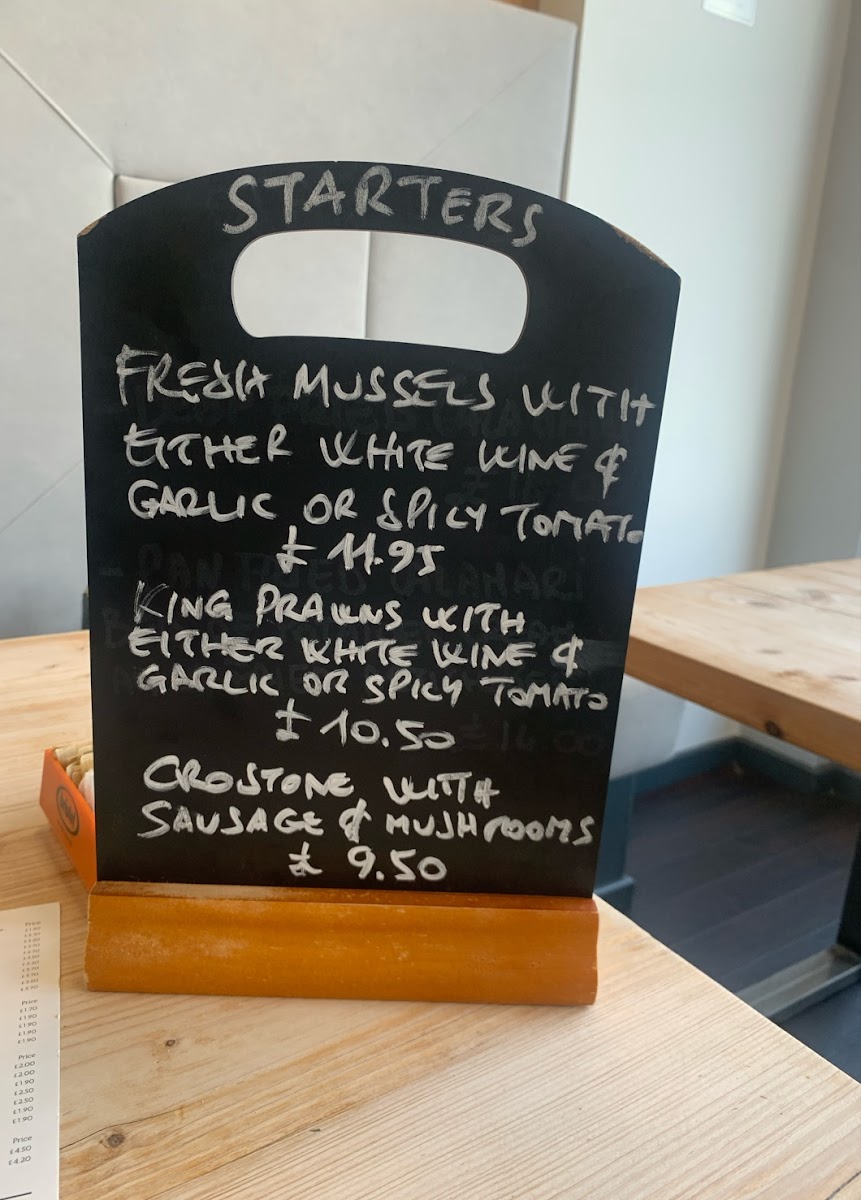 STARTERS
FRESH MUSSELS WITH
EITHER WHITE WINE &
GARLIC OR SPICY TOMATO
£ 11.95
KING PRAWNS WITH
EITHER WHITE WINE &
GARLIC OR SPICY TOMATO
£ 10.50
CROSTONE WITH
SAUSAGE & MUSHROOMS
£ 9.50
Price
Price
£1.70
£1.90
£1.90
£1.90
£1.90
Price
£2.00
£2.00
£1.90
£2.50
£2.50
£1.90
£1.90
Price
£4.50
£4.20